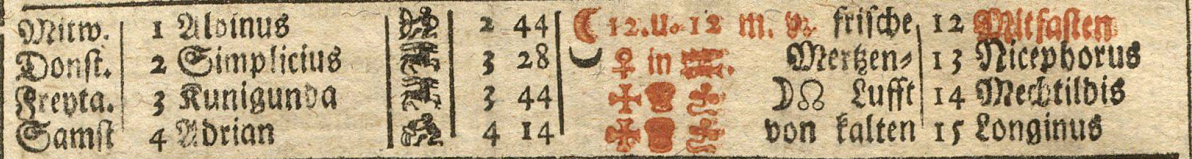 Mitw. 1 Albinus 2 44 ☾ 12. u. 12 m. v. frische 12 Mitfasten
Donst. 2 Simplicius 3 28 ☾ ♀ in ♒. Mertzen- 13 Nicephorus
Freyta. 3 Kunigunda 3 44 ☽☊ Lufft 14 Mechtildis
Samst 4 Adrian 4 14 von kalten 15 Longinus